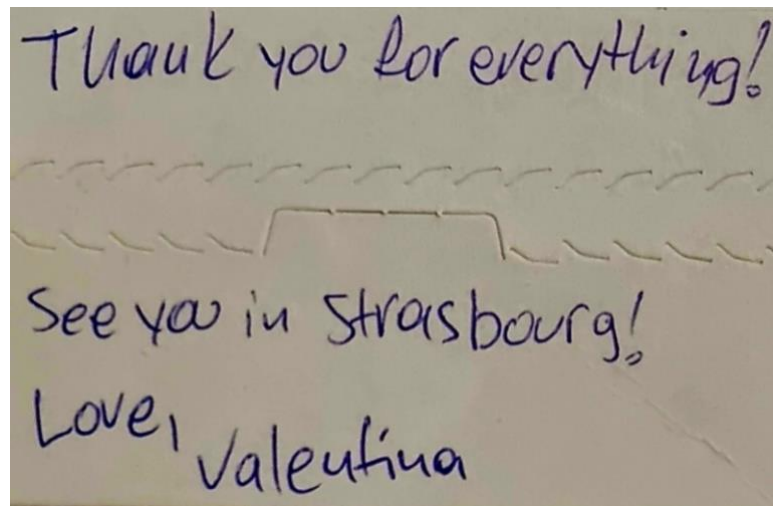 Thank you for everything!
See you in Strasbourg!
Love,
Valentina